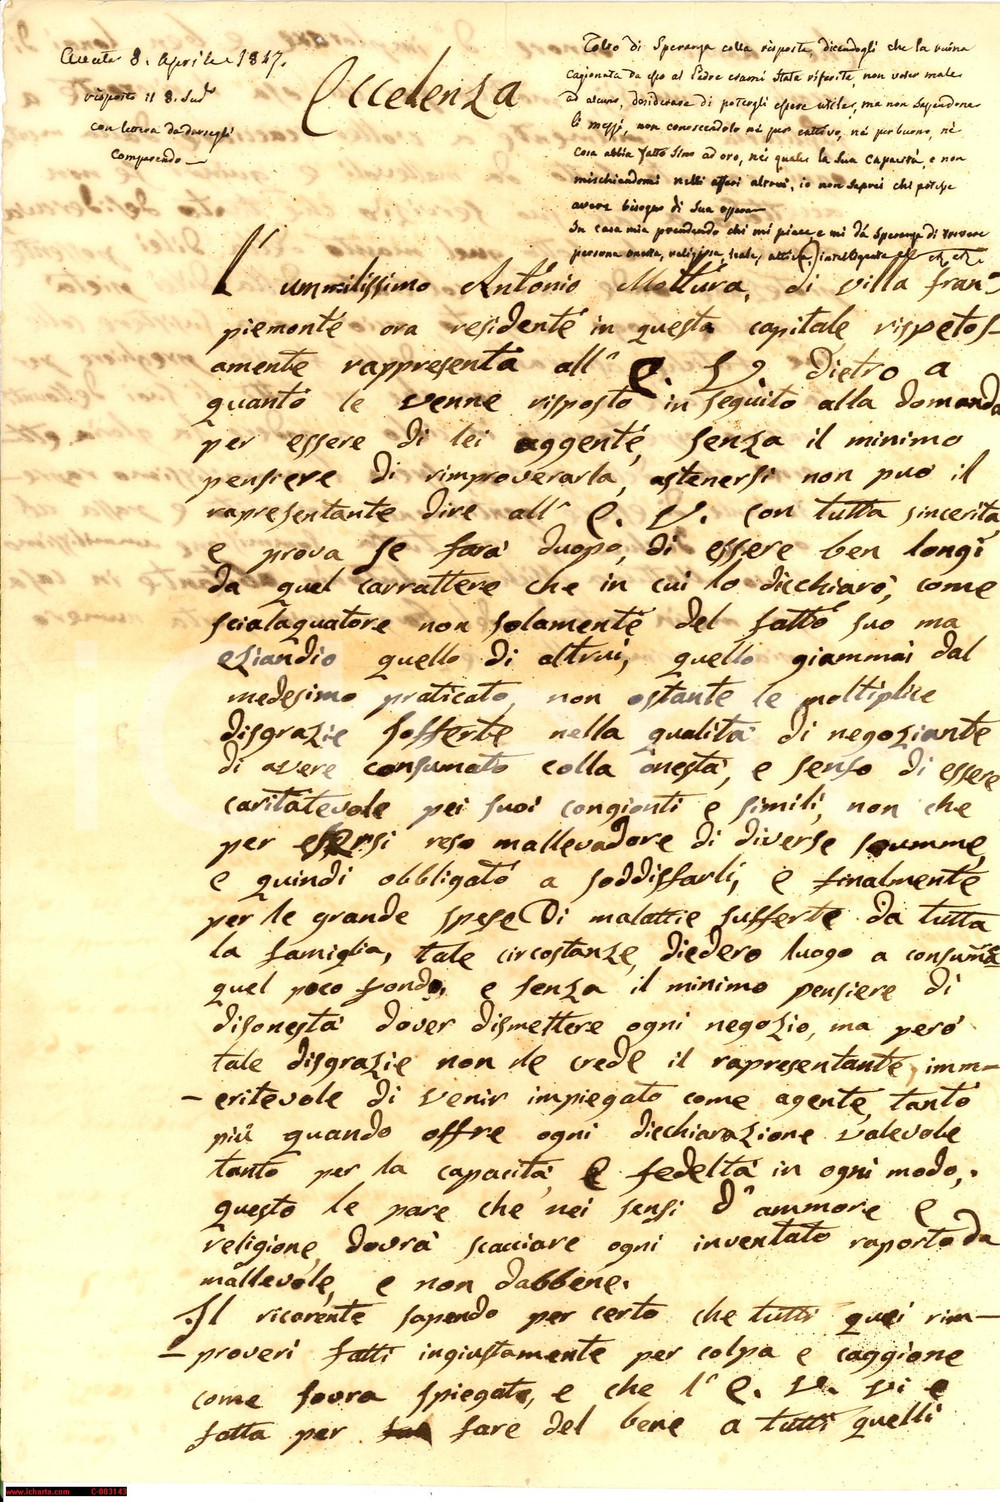 Avuta 8. Aprile 1847.
risposto il 8. Sud.º
con lettera da darsegli
Comparendo —
Eccelenza
Tolto di Speranza colla risposta, dicendogli che la buina
cagionata da esso al Padre erami stata riferita, non voler male
ad alcuno, desiderare di potergli essere utile, ma non sapendone
li mezzi, non conoscendolo né per cattivo, né per buono, né
cosa abbia fatto sino ad oro, né quale la sua capacità, e non
mischiandomi nelli affari altrui, io non saprei chi potesse
avere bisogno di sua opera
In casa mia prendendo chi mi piace e mi dà Speranza di essere
persona onesta, religiosa, leale, attiva, intelligente
L' ummilissimo António Mottura, di villa fran=
piemonté ora residenté in questa capitale, rispetos=
amente rappresenta all' E. V. dietro a
quanto le venne risposto in seguito alla domanda
per essere di lei aggenté, senza il minimo
pensiere di rimproverarla, astenersi non può il
rapresentante dire all' E. V. con tutta sincerità
e prova se farà duopo, di essere ben longi
da quel carrattere che in cui lo dicchiarò, come
scialaquatore non solamenté del fatto suo ma
eziandio quello di altrui, quello giammai dal
medesimo praticato, non ostante le moltiplice
disgrazie sofferte nella qualità di negoziante
di avere consumato colla onestà, e senso di essere
caritatevole pei suoi congionti e simili, non che
per essersi reso mallevadore di diverse soumme,
e quindi obbligató a soddisfarli, e finalmente
per le grande spese di malattie sufferte da tutta
la famiglia, tale circostanze, diedero luogo a consumã
quel poco fondo, e senza il minimo pensiere di
disonestà dover dismettere ogni negozio, ma però
tale disgrazie non le crede il rapresentante, imm=
=eritevole di venir impiegato come agente, tantó
più quando offre ogni dicchiarazione valevole
tanto per la capacità, e fedeltà in ogni modo,.
questo le pare che nei sensi d'ammore e
religione, dovrà scacciare ogni inventato raporto da
mallevole, e non dabbene.
Il ricorente sapendo per certo che tutti quei rim=
=proveri fatti ingiustamente per colpa e caggione
come sovra spiegate, e che l' E. V. vi è
fatta per fare del bene a tutti quelli
www.icharta.com C-003143